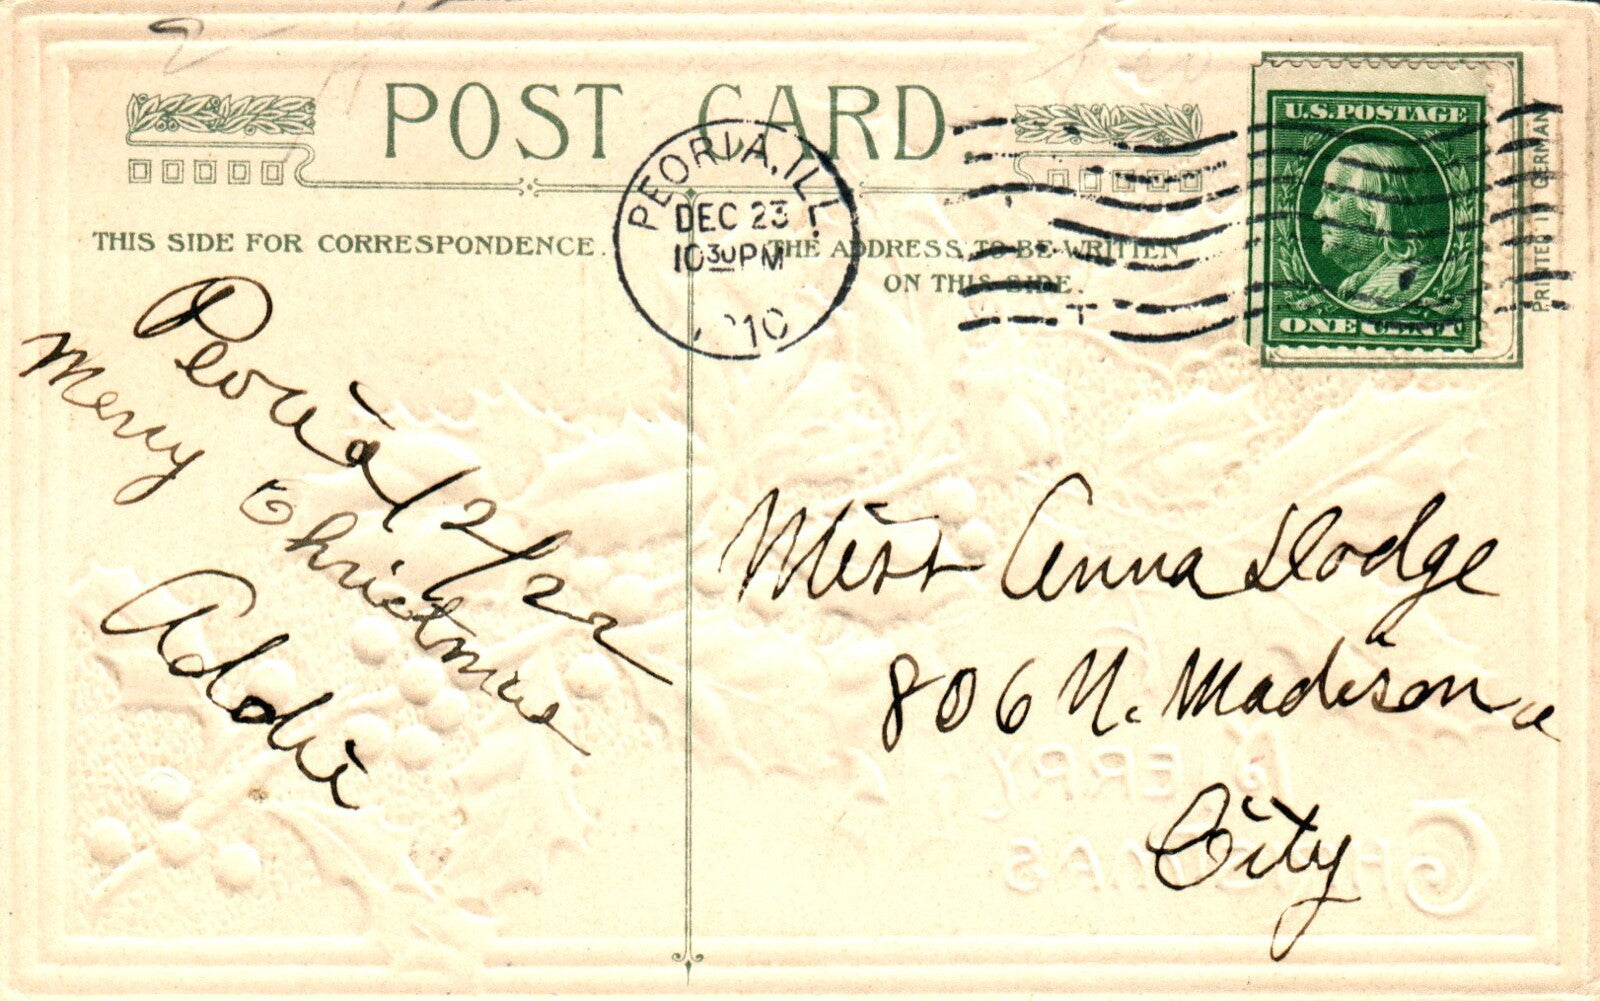 POST CARD
THIS SIDE FOR CORRESPONDENCE.
THE ADDRESS TO BE WRITTEN
ON THIS SIDE.
PEORIA, ILL.
DEC 23
10 30 PM
1910
U.S. POSTAGE
ONE CENT
PRINTED IN GERMANY
Peoria 12/22
Merry Christmas
Addie
Miss Anna Dodge
806 N. Madison
City
MERRY
CHRISTMAS